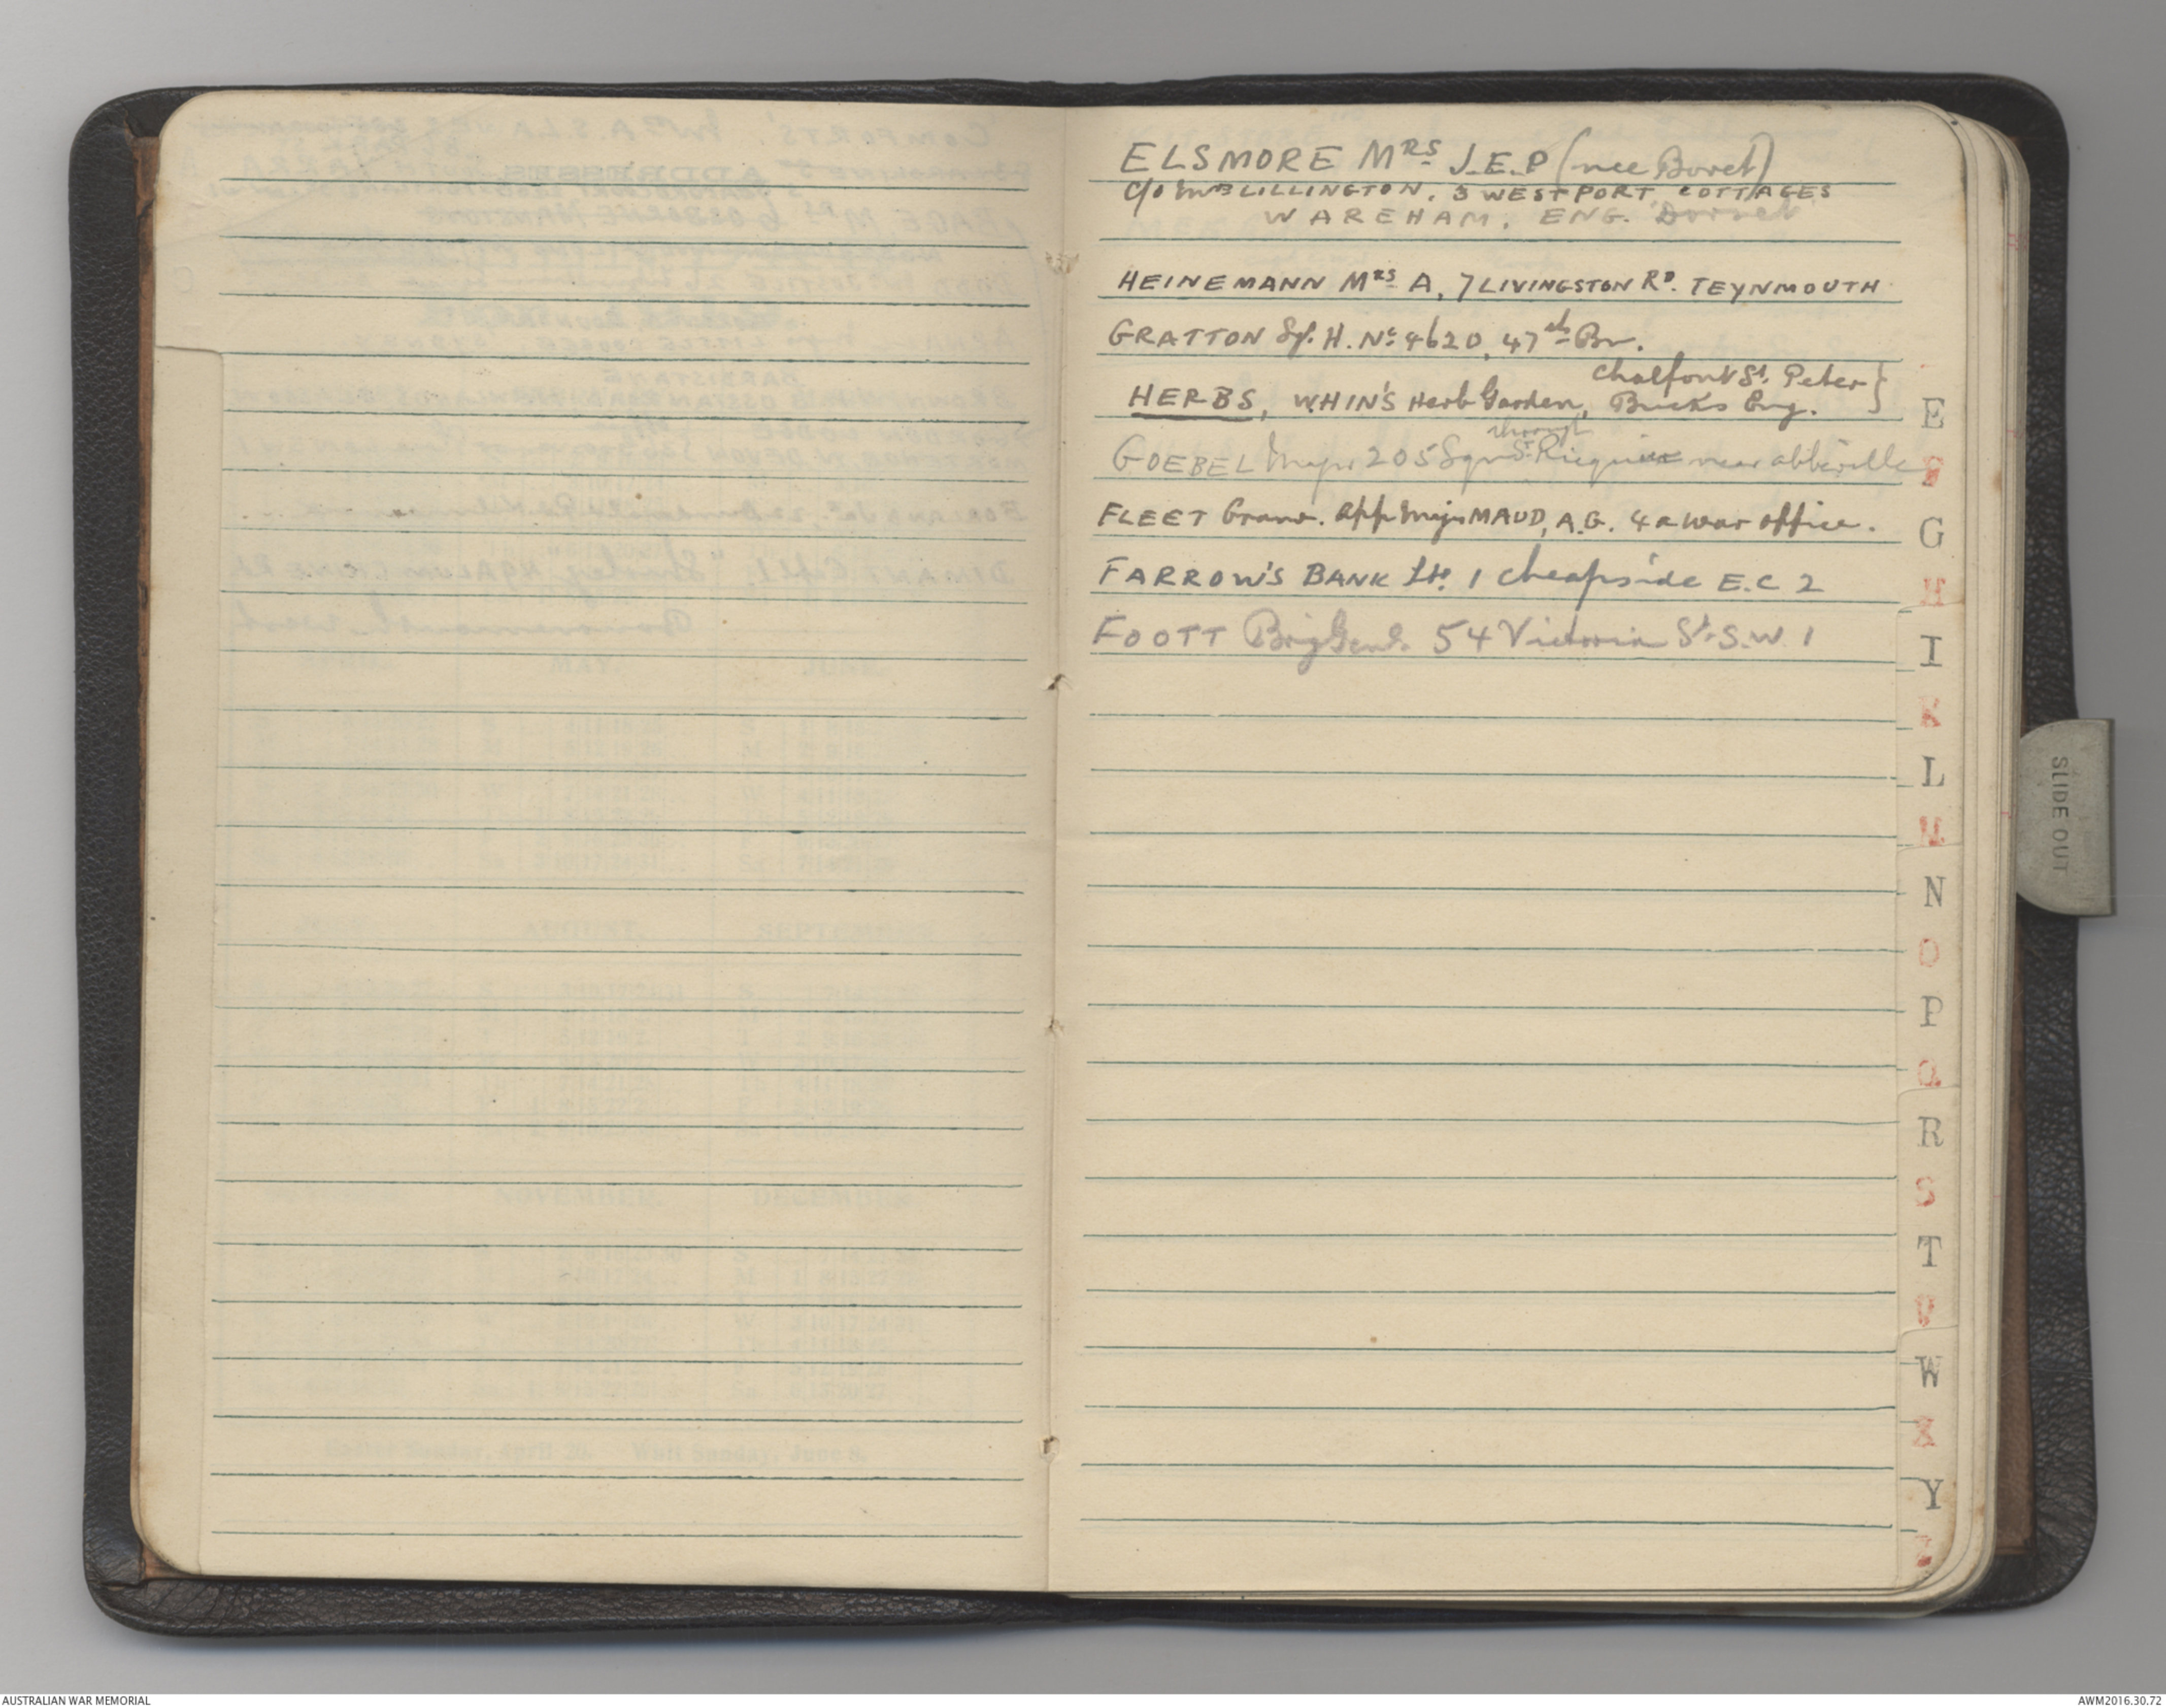 ELSMORE MRS J.E.P (nee Bovet)
C/o MRS LILLINGTON, 3 WESTPORT COTTAGES
WAREHAM, ENG. Dorset
HEINEMANN MRS A, 7 LIVINGSTON RD. TEYNMOUTH
GRATTON H. No 4620, 47th Bn.
Chalfont St. Peter
HERBS, WHIN'S Herb Garden, Bucks Eng.
through
GOEBEL Major 205 Sqn St. near abbeville
FLEET app Major MAUD, A.G. 4a war office.
FARROW'S BANK Ltd. 1 cheapside E.C 2
FOOTT Brig Genl. 54 Victoria St. S.W 1
E
F
G
H
I
K
L
M
N
O
P
Q
R
S
T
W
X
Y
SLIDE OUT
AUSTRALIAN WAR MEMORIAL
AWM2016.30.72